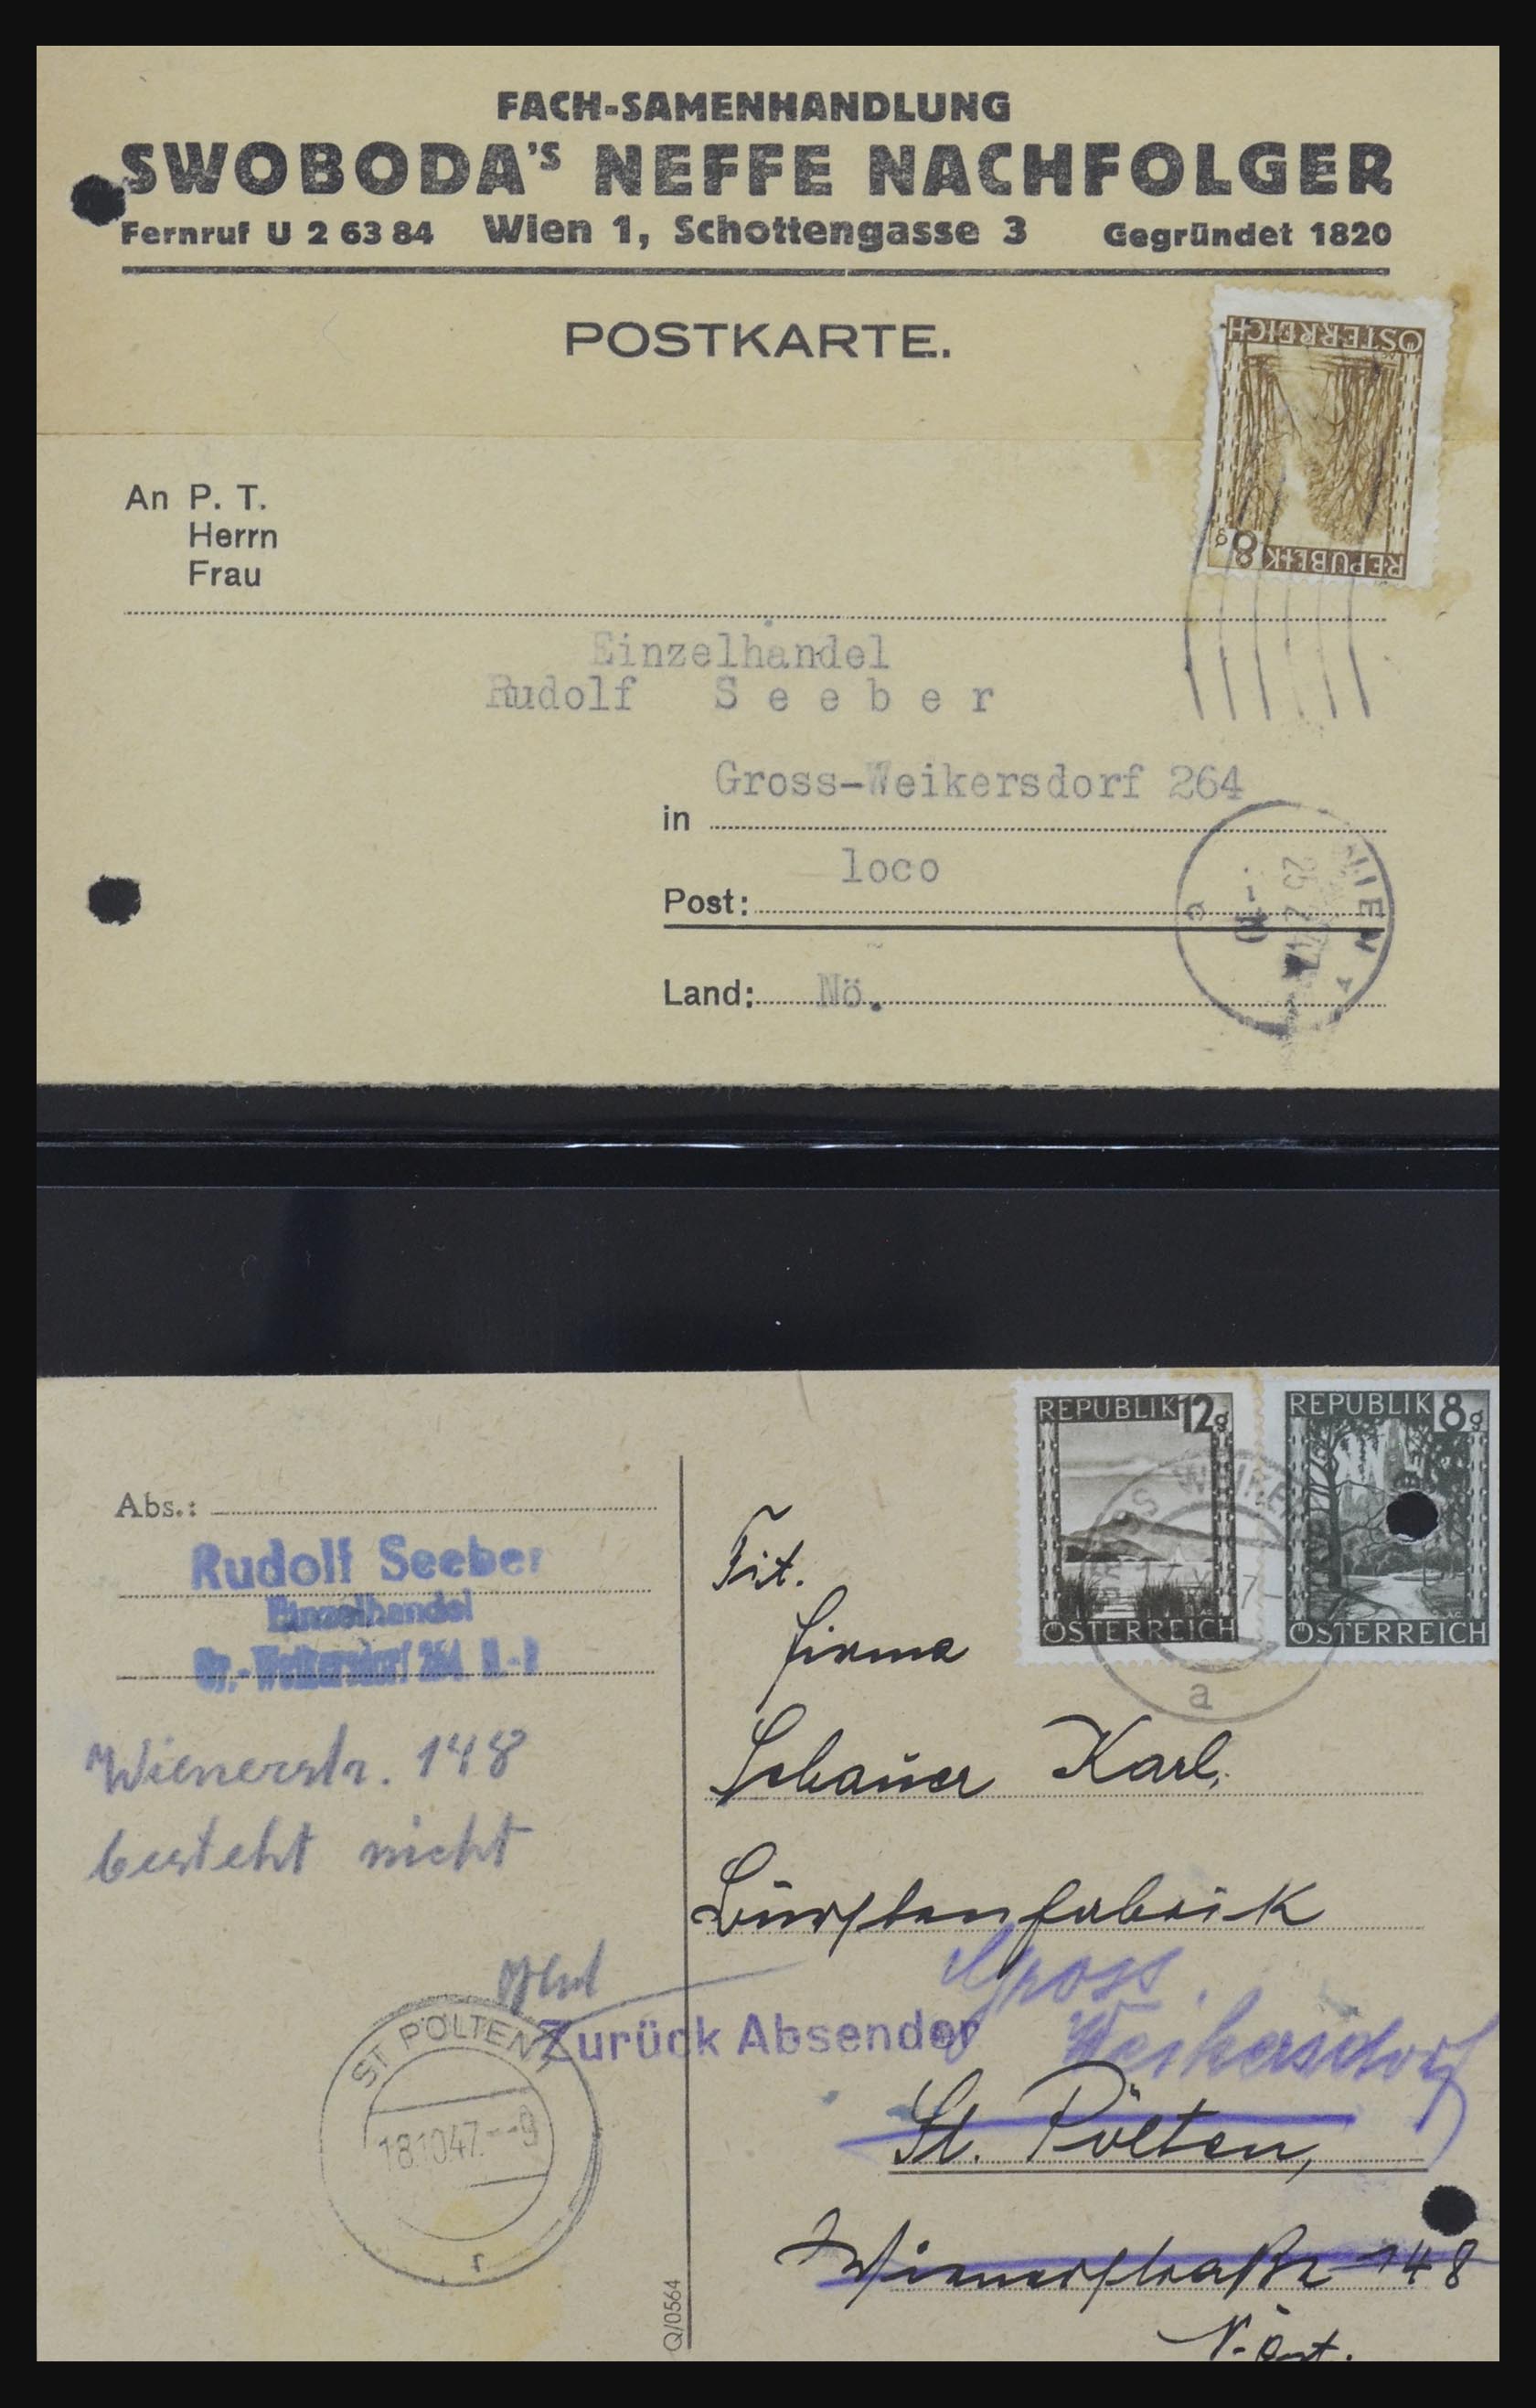 FACH-SAMENHANDLUNG
SWOBODA'S NEFFE NACHFOLGER
Fernruf U 2 63 84 Wien 1, Schottengasse 3 Gegründet 1820
POSTKARTE.
ÖSTERREICH
8g
REPUBLIK
An P. T.
Herrn
Frau
Einzelhandel
Rudolf Seeber
Gross-Weikersdorf 264
in
loco
Post:
Land: Nö.
WIEN
25 2 47
REPUBLIK 12g
ÖSTERREICH
REPUBLIK 8g
ÖSTERREICH
a
Abs.:
Rudolf Seeber
Einzelhandel
Gr.-Weikersdorf 264. N.-Ö
Wienerstr. 148
besteht nicht
Tit.
Firma
Schauer Karl,
Bürstenfabrik
Gross
Weikersdorf
Zurück Absender
St. Pölten,
Wienerstraße 148
N.-Öst.
ST PÖLTEN
18.10.47.--9
r
Q/0564